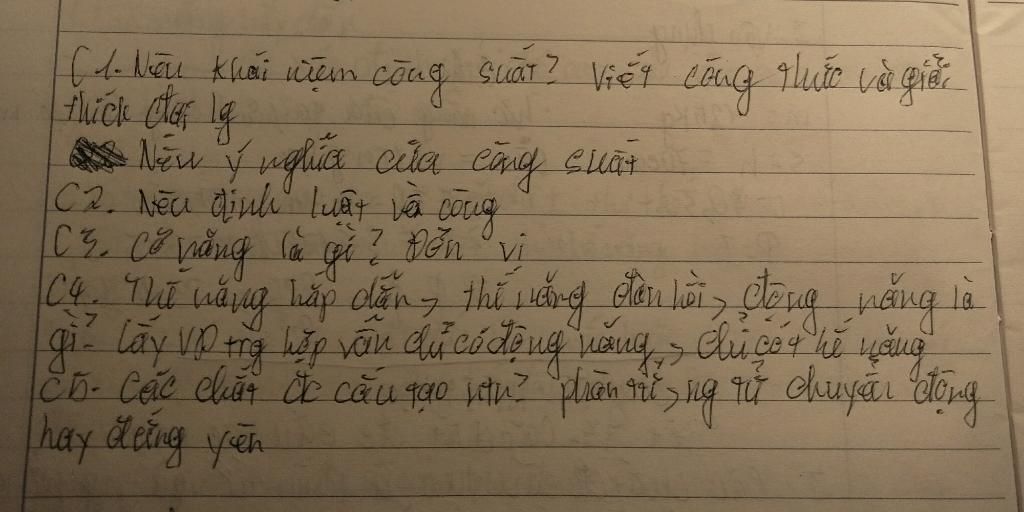 C1. Nêu khái niệm công suất? Viết công thức và giải
thích đại lg
Nêu ý nghĩa của công suất
C2. Nêu định luật về công
C3. Cơ năng là gì? Đơn vị
C4. Thế năng hấp dẫn, thế năng đàn hồi, động năng là
gì? Lấy VD trg hợp vẫn đủ có động năng, đủ có thế năng
C5. Các chất đc cấu tạo ntn? phân tử, ng tử chuyển động
hay đứng yên